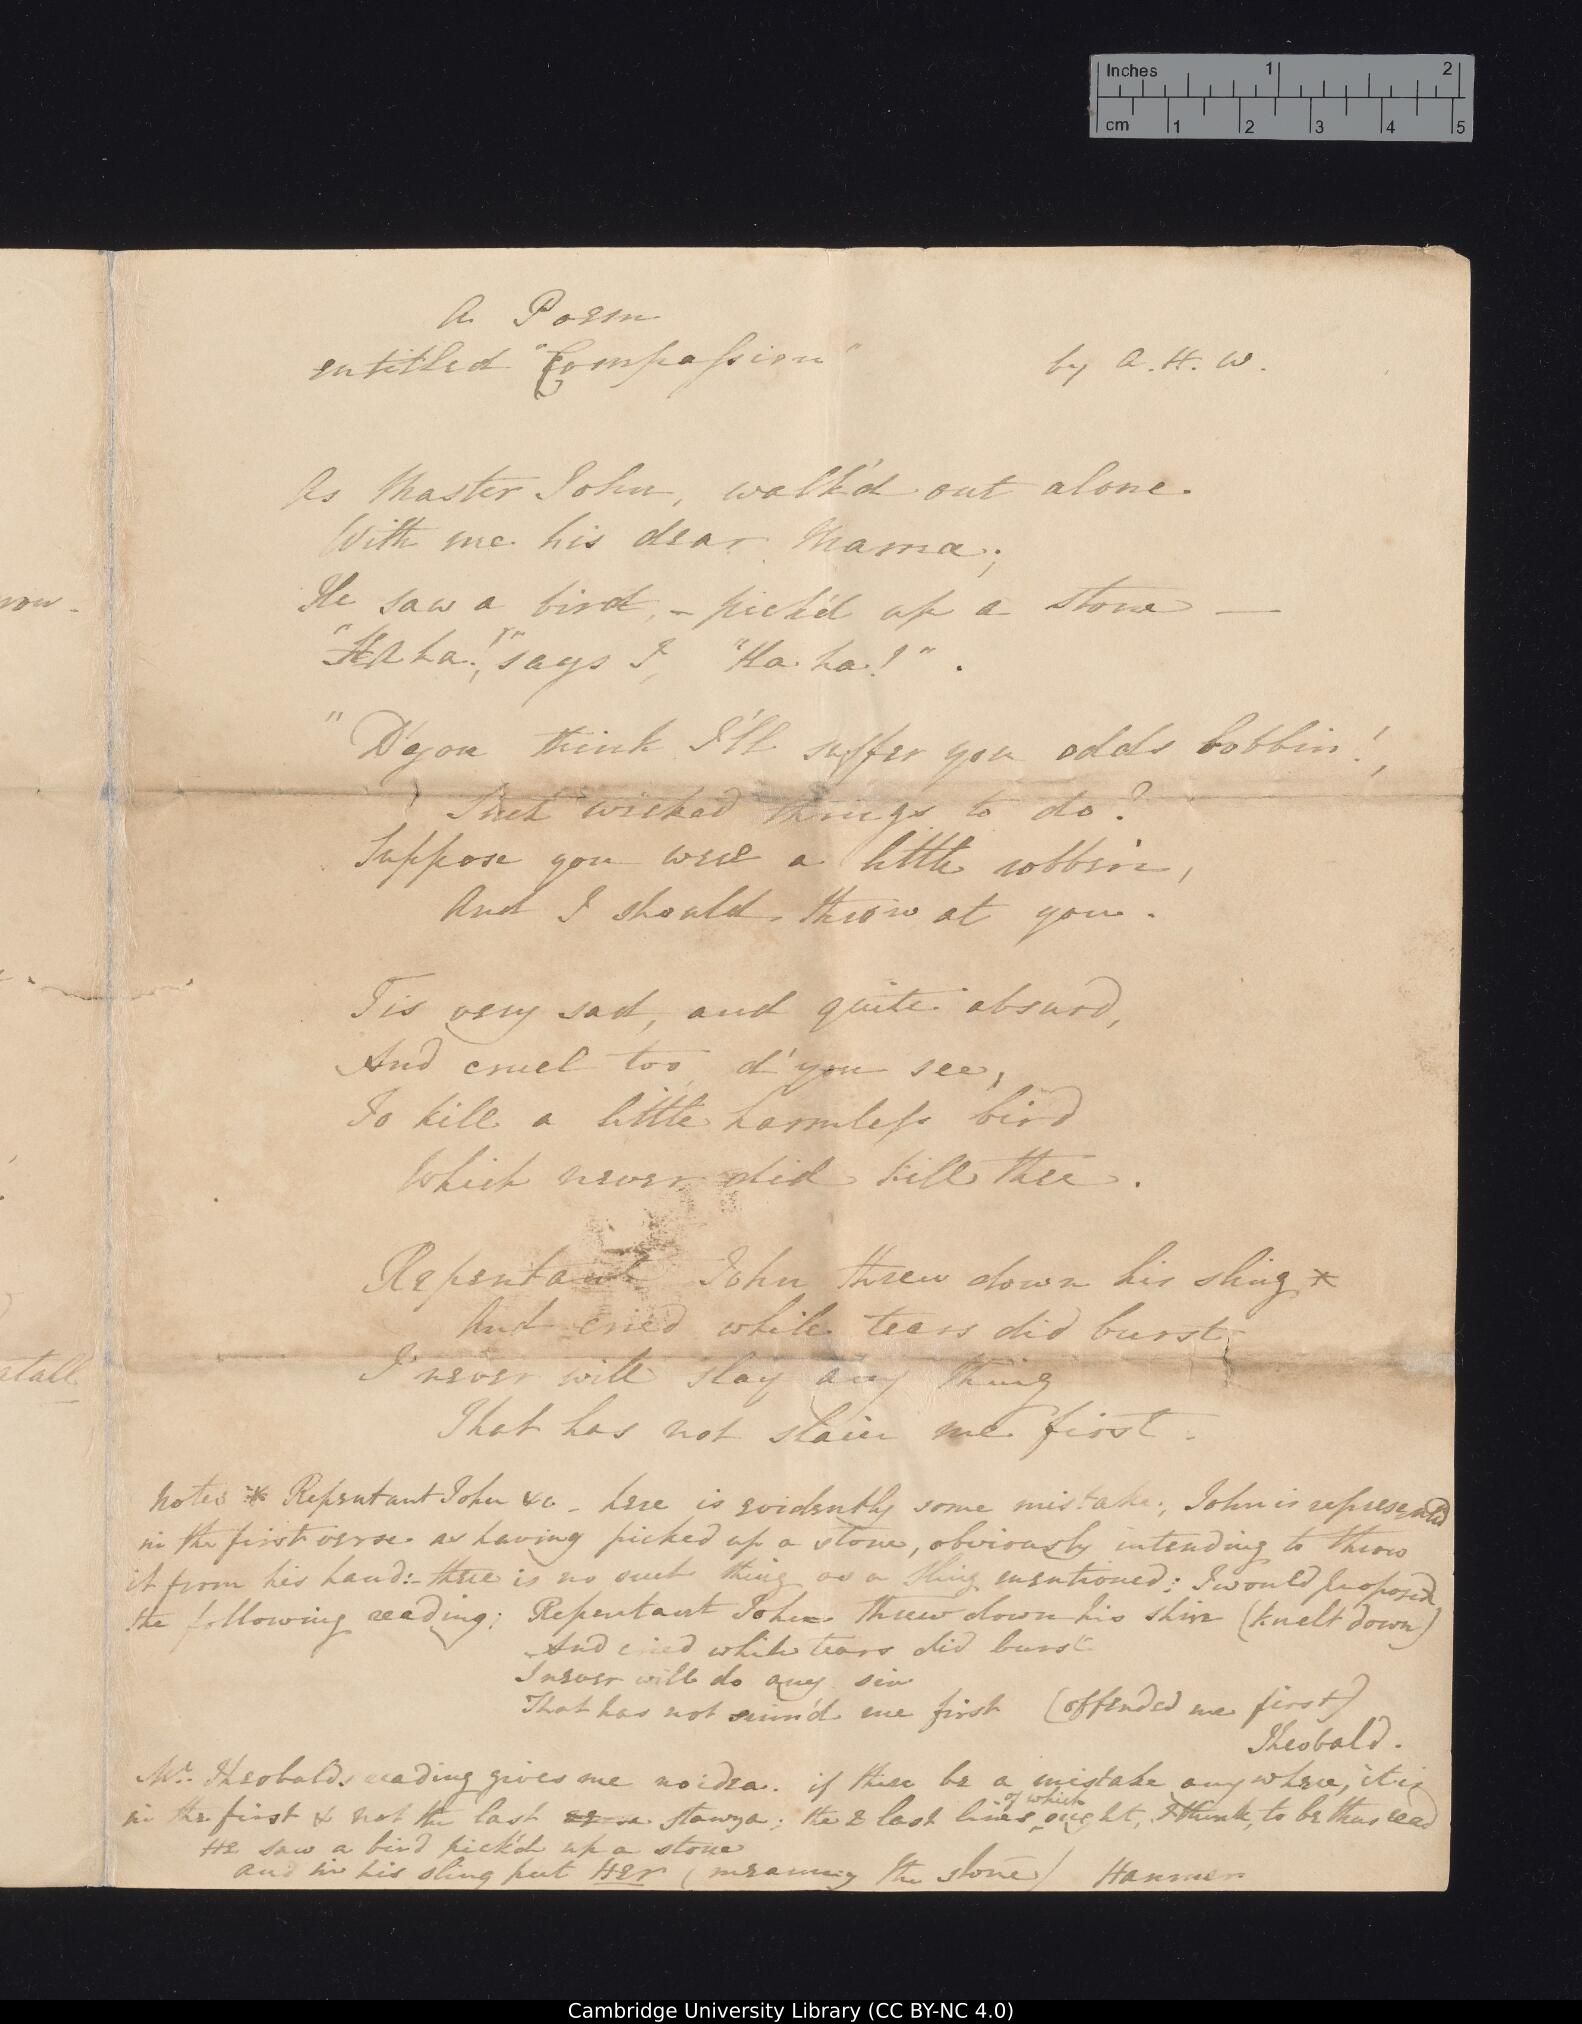 Inches 1 2
cm 1 2 3 4 5
A Poem
entitled "Compassion" by A. H. W.
As Master John, walk'd out alone.
With me his dear Mama;
He saw a bird, - pick'd up a stone —
"Ha ha!," says I, "Ha ha!".
"D'you think I'll suffer you odds bobbin!,
Such wicked things to do?
Suppose you were a little robbin,
And I should throw at you.
Tis very sad, and quite absurd,
And cruel too, d'you see,
To kill a little harmless bird
Which never did kill thee.
Repentant John threw down his sling *
And cried while tears did burst
I never will slay any thing
That has not slain me first.
Notes * Repentant John &c - here is evidently some mistake; John is represented
in the first verse as having picked up a stone, obviously intending to throw
it from his hand:- there is no such thing as a sling mentioned: I would propose
the following reading; Repentant John threw down his shin (knelt down)
And cried while tears did burst
I never will do any sin
That has not sinn'd me first (offended me first)
Theobald.
Mr. Theobalds reading gives me no idea. if there be a mistake anywhere, it is
of which
in the first & not the last stanza; the 2 last lines ought, I think, to be thus read
He saw a bird pick'd up a stone
and in his sling put Her (meaning the stone) Hanmer
atall
Cambridge University Library (CC BY-NC 4.0)